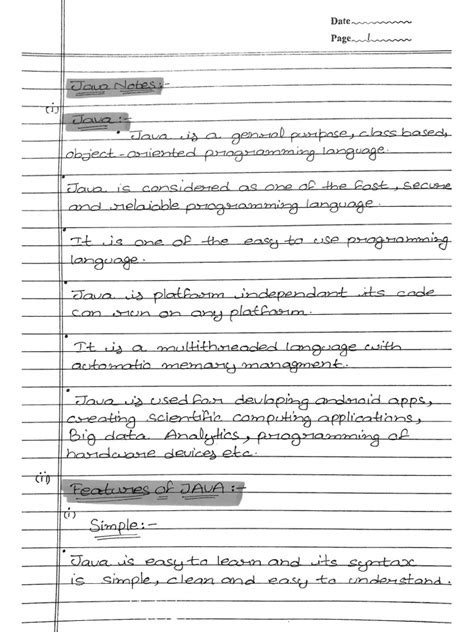 Date
Page 1
Java Notes:-
(i)
Java :-
• Java is a genral purpose, class based,
object-oriented programming language.
• Java is considered as one of the fast, secure
and relaiable programming language.
• It is one of the easy to use programming
language.
• Java is platform independant its code
can run on any platform.
• It is a multithreaded language with
automatic memory managment.
• Java is used for devloping android apps,
creating scientific computing applications,
Big data Analytics, programming of
hardware devices etc.
(ii)
Features of JAVA :-
(i)
Simple:-
• Java is easy to learn and its syntax
is simple, clean and easy to understand.